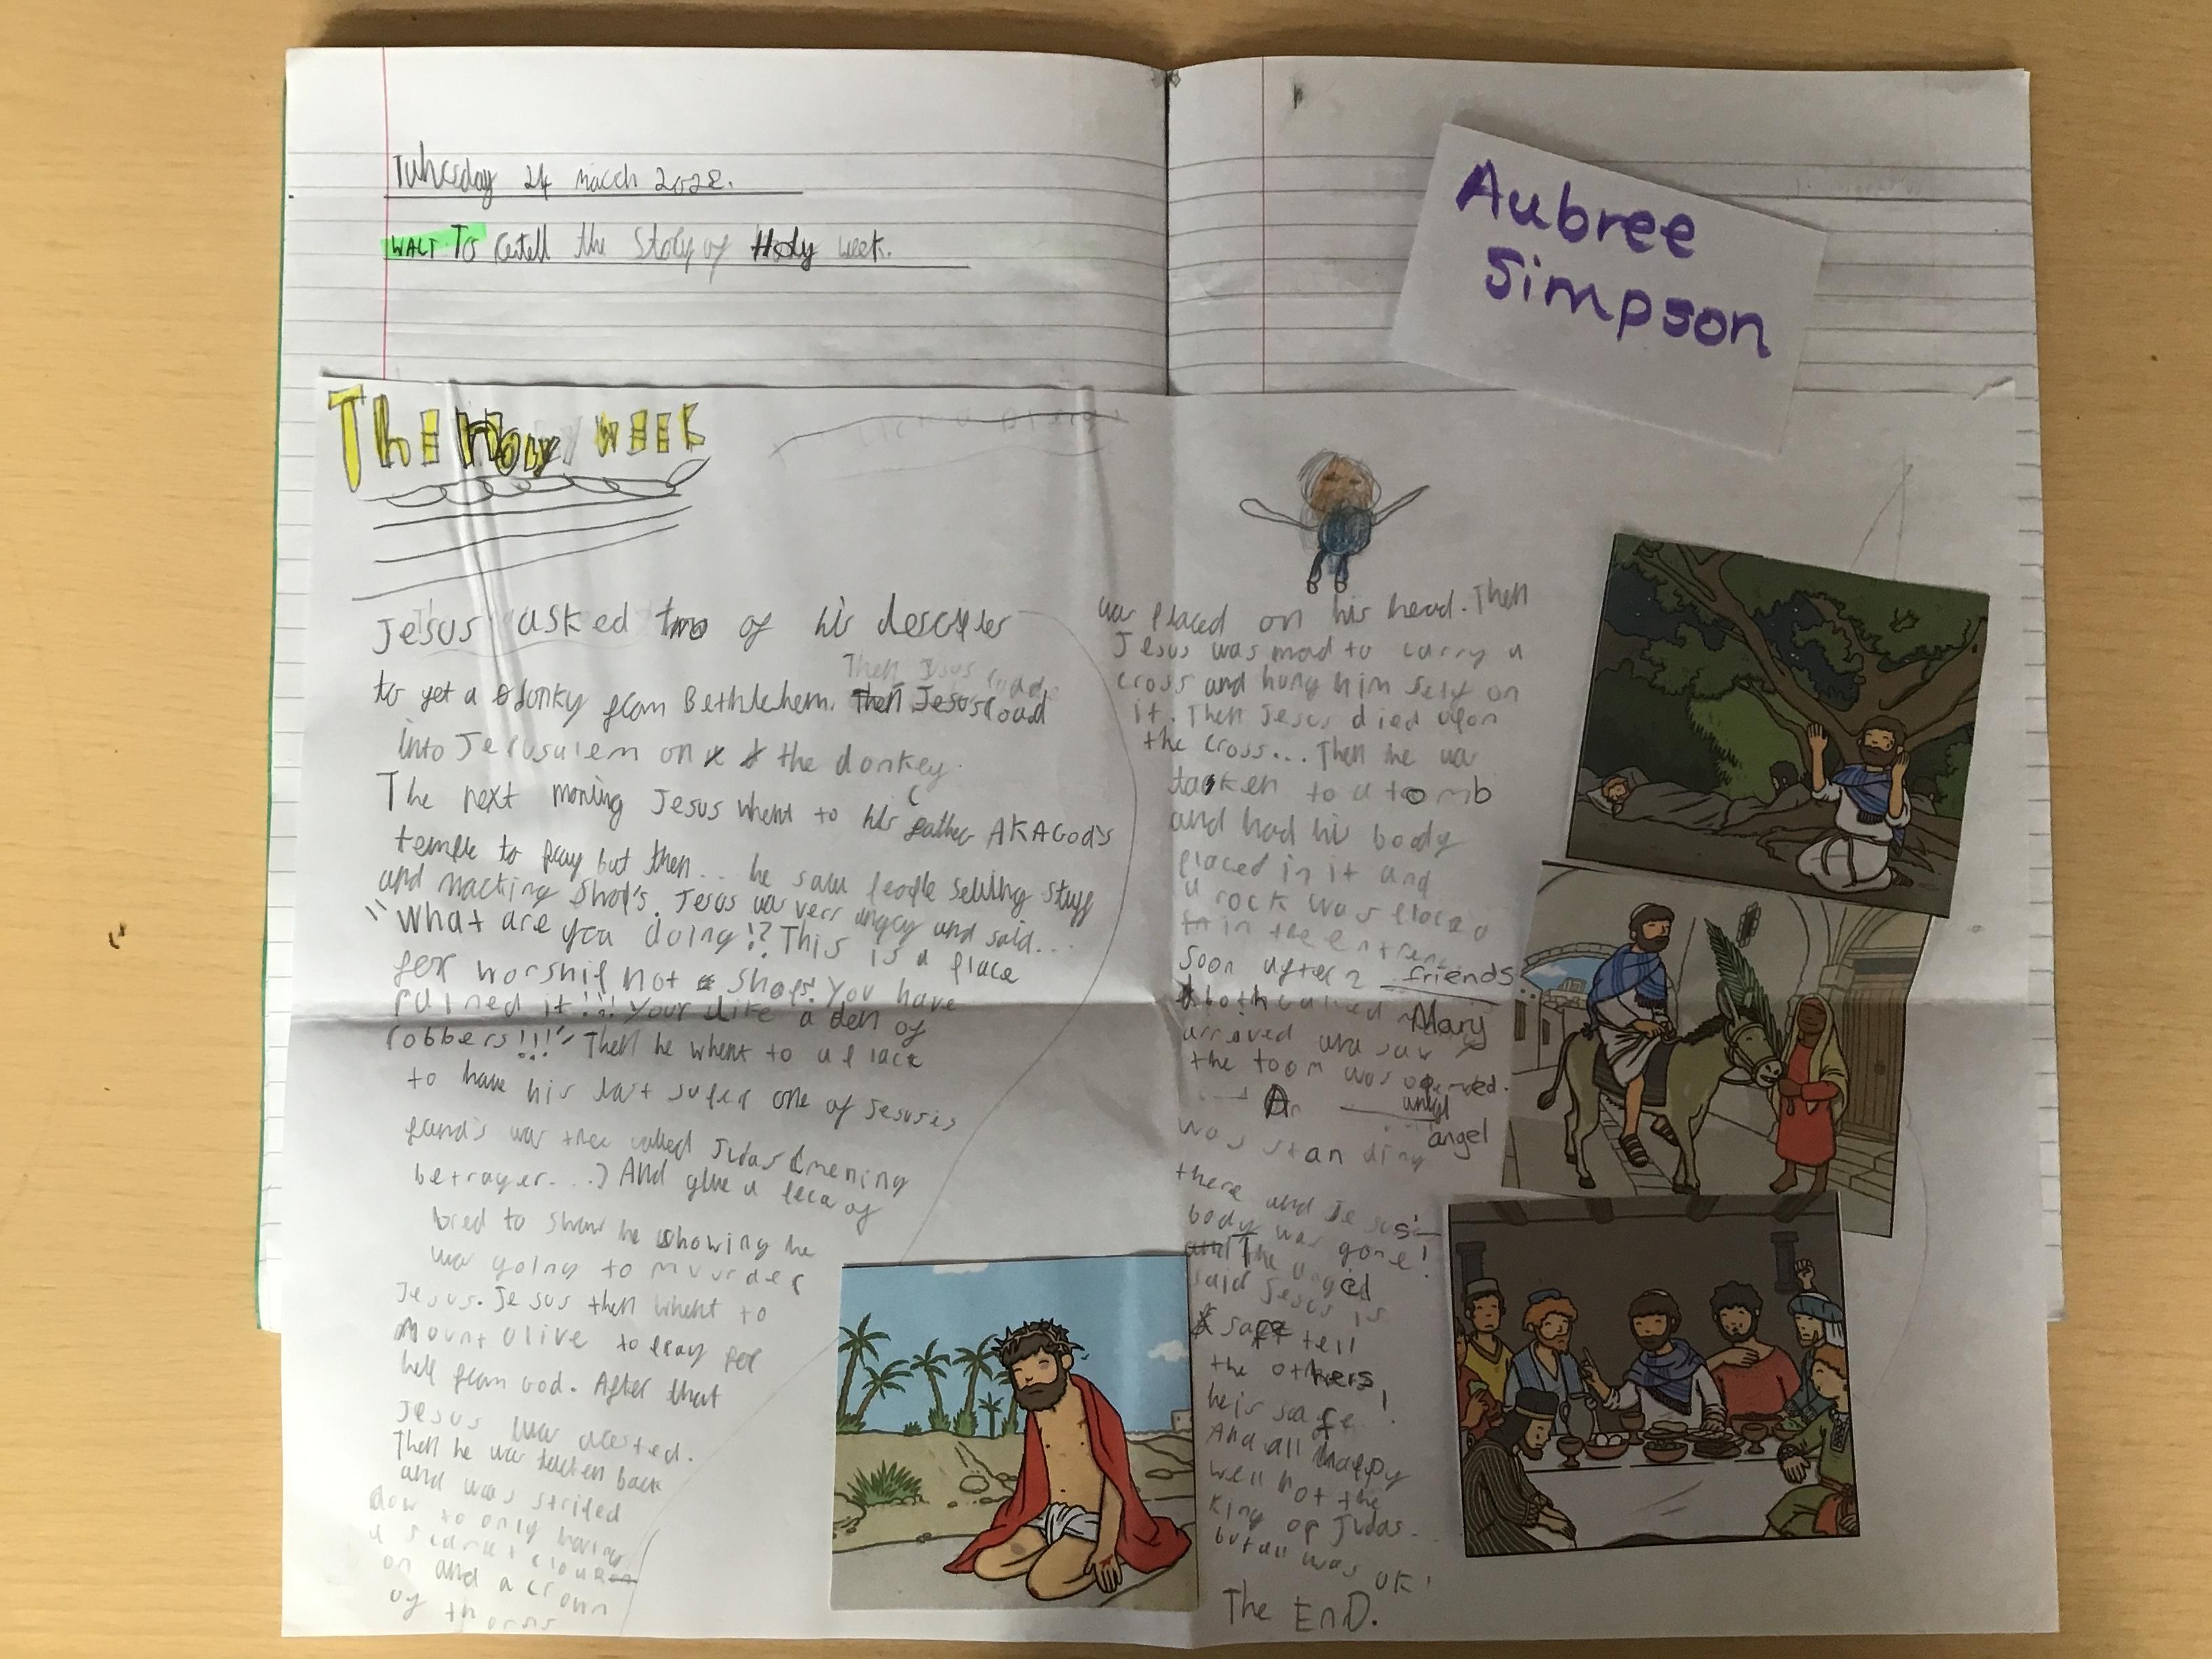 Tuhesday 24 march 2022.
WALT To retell the Story of Holy week.
Aubree
Simpson
The Holy WEEK
Jesus asked two of his desciples
to get a donky from Bethlehem. Then Jesus road
Then Jesus
into Jerusalem on the donkey.
The next morning Jesus whent to his father AKA God's
temple to pray but then... he saw people selling stuff
and macking shop's. Jesus was very angey and said...
"What are you doing!? This is a place
for worship not shops! You have
ruined it!!! Your like a den of
robbers!!!" Then he whent to a place
to have his last super one of Jesus's
frand's was there called Judas (mening
betrayer...) And gave a peca of
bred to show he showing he
was going to muurder
Jesus. Jesus then whent to
mount olive to pray for
help from God. After that
Jesus was aressted.
Then he was tacken back
and was striped
dow to only having
a scarlet
on and a crown
of thorns
was placed on his head. Then
Jesus was mad to carry a
cross and hung him self on
it. Then Jesus died upon
the cross... Then he was
tacken to a tomb
and had his body
placed in it and
a rock was placed
in the
soon after 2 friends
both called Mary
arraved and saw
the toom was opened.
An angel
angel
was standing
there and Jesus'
body was gone!
and The angel
said Jesus is
safe tell
the others
he is safe!
And all happy
well not the
King or Judas.
but all was OK!
The EnD.